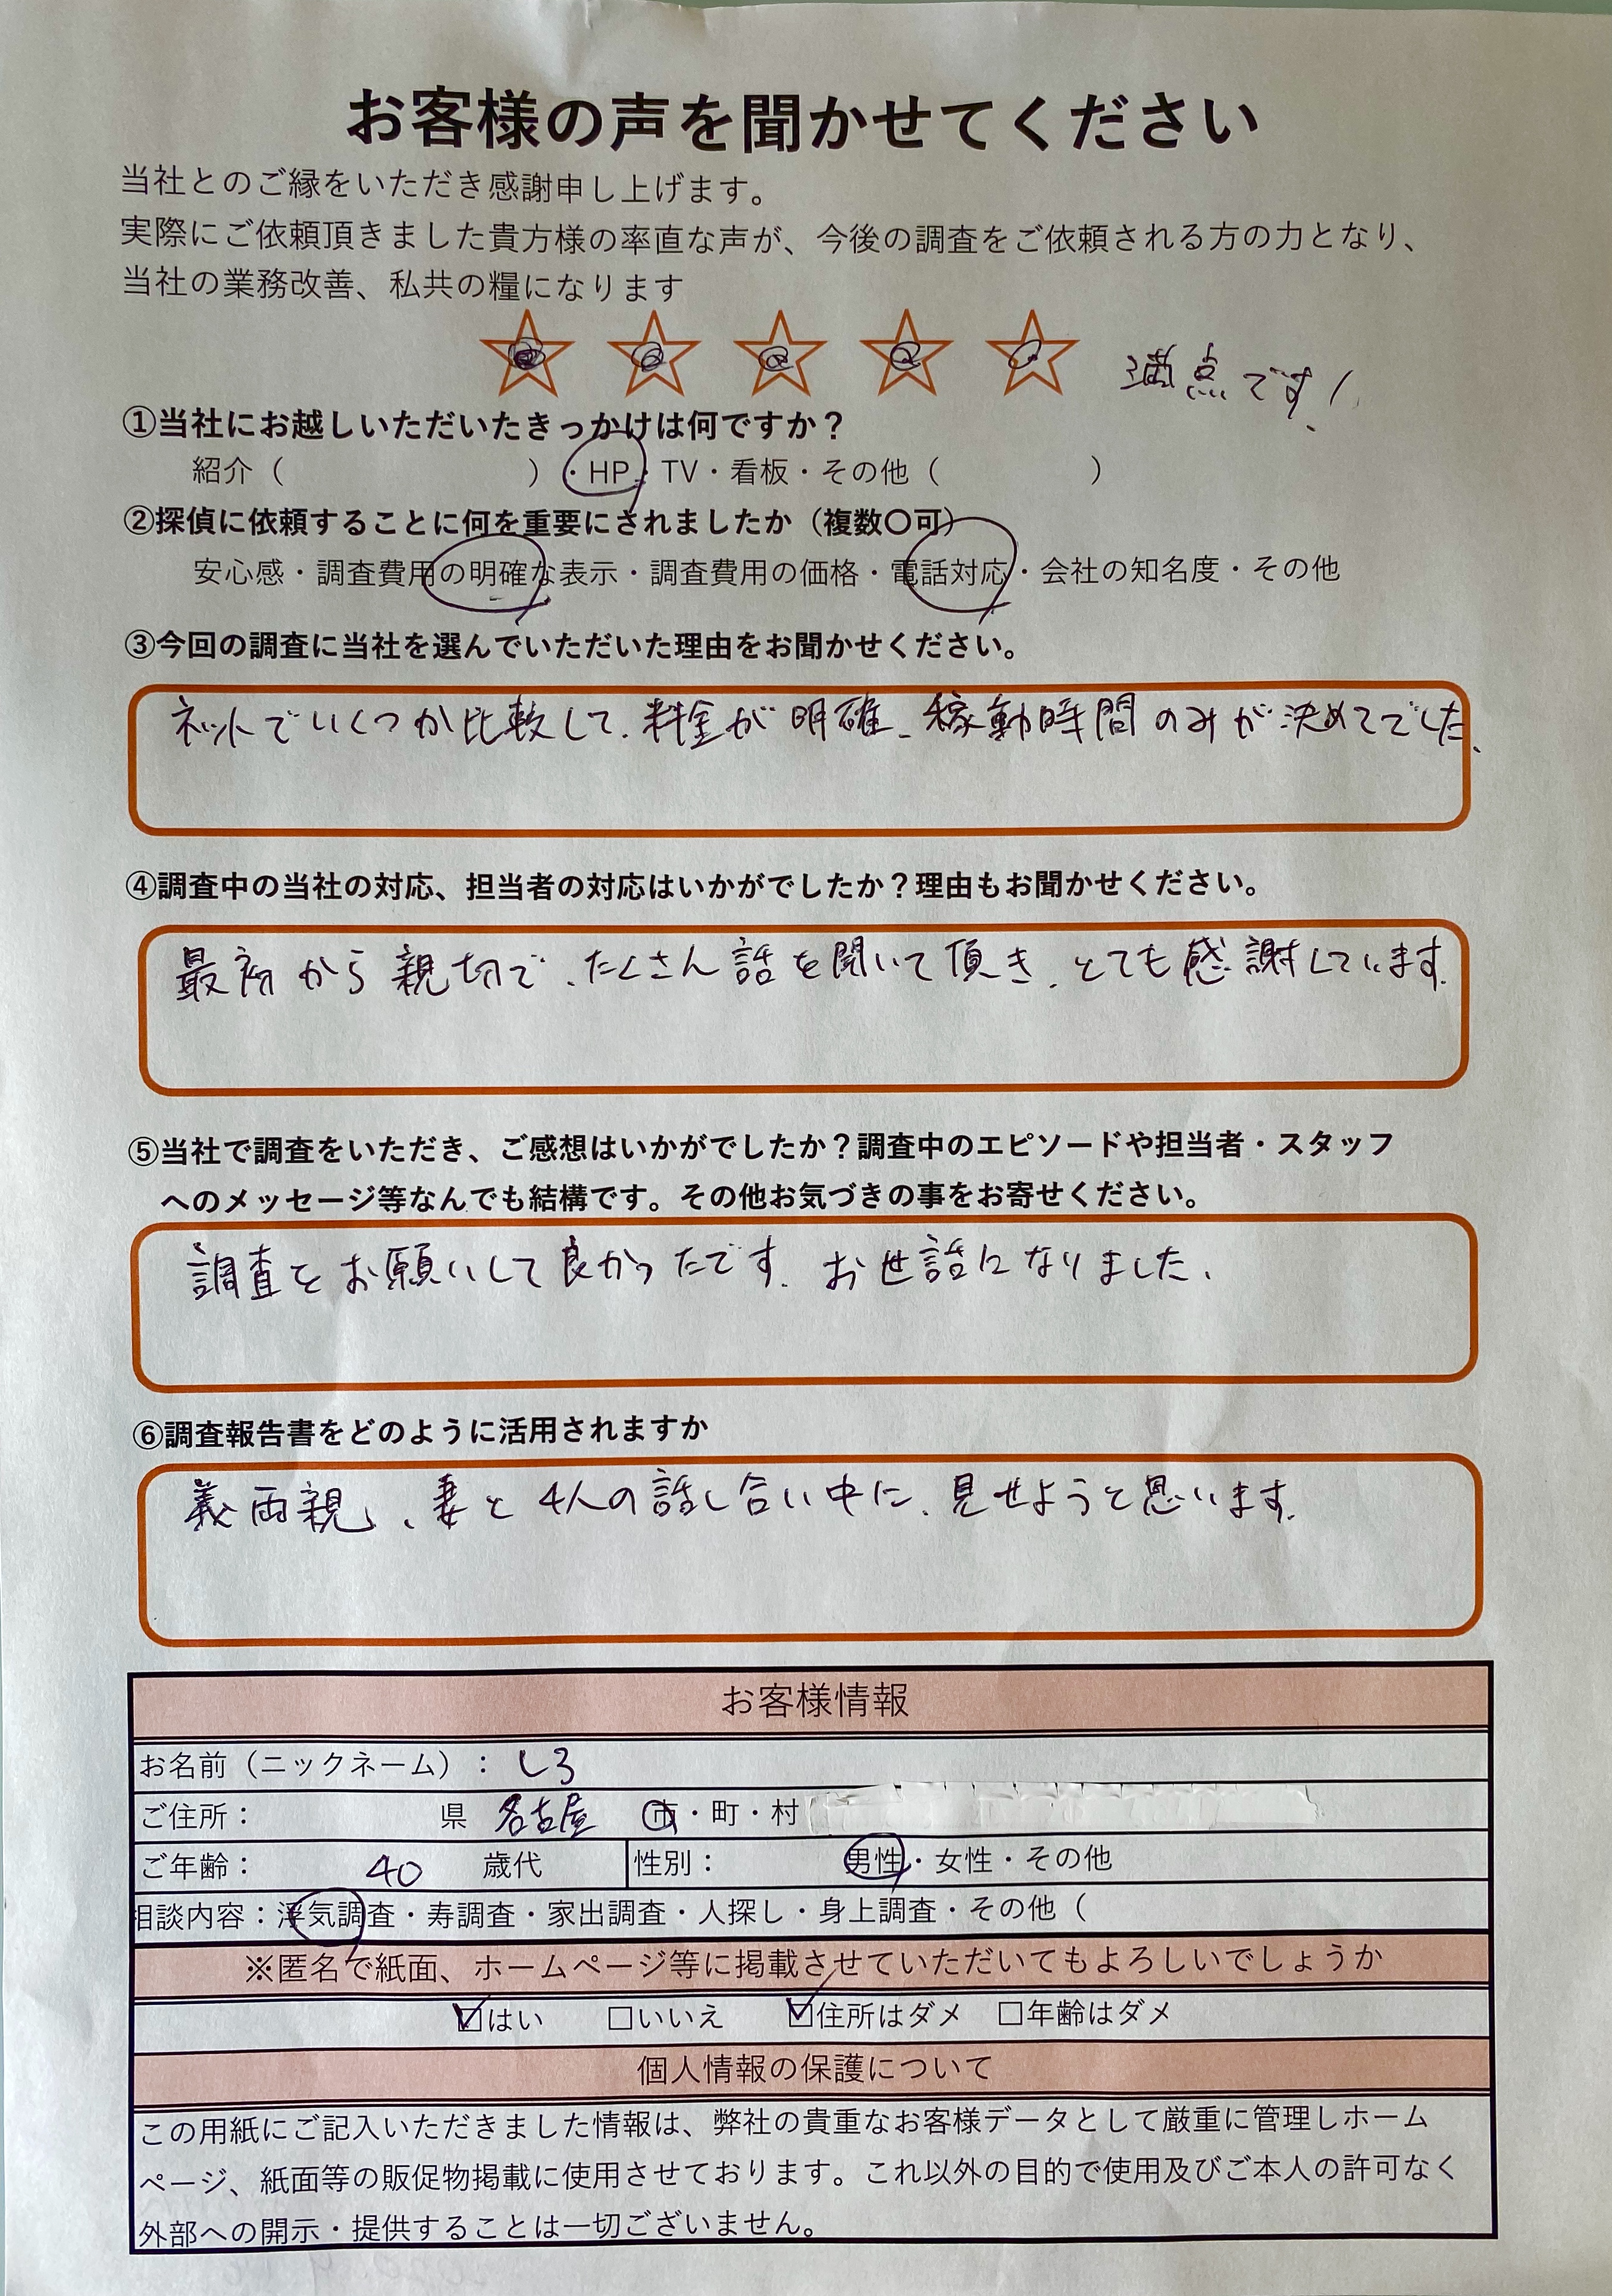 お客様の声を聞かせてください
当社とのご縁をいただき感謝申し上げます。
実際にご依頼頂きました貴方様の率直な声が、今後の調査をご依頼される方の力となり、
当社の業務改善、私共の糧になります
満点です!
①当社にお越しいただいたきっかけは何ですか？
紹介（　　　　　　　　）・HP・TV・看板・その他（　　　　　）
②探偵に依頼することに何を重要にされましたか（複数〇可）
安心感・調査費用の明確な表示・調査費用の価格・電話対応・会社の知名度・その他
③今回の調査に当社を選んでいただいた理由をお聞かせください。
ネットでいくつか比較して、料金が明確、稼動時間のみが決めてでした、
④調査中の当社の対応、担当者の対応はいかがでしたか？理由もお聞かせください。
最初から親切で、たくさん話を聞いて頂き、とても感謝しています。
⑤当社で調査をいただき、ご感想はいかがでしたか？調査中のエピソードや担当者・スタッフ
へのメッセージ等なんでも結構です。その他お気づきの事をお寄せください。
調査をお願いして良かったです。お世話になりました、
⑥調査報告書をどのように活用されますか
義両親、妻と4人の話し合い中に、見せようと思います。
お客様情報
お名前（ニックネーム）：しろ
ご住所：　　　　　県 名古屋 市・町・村
ご年齢：　40　歳代　性別：　男性・女性・その他
相談内容：浮気調査・寿調査・家出調査・人探し・身上調査・その他（
※匿名で紙面、ホームページ等に掲載させていただいてもよろしいでしょうか
☑はい　□いいえ　☑住所はダメ　□年齢はダメ
個人情報の保護について
この用紙にご記入いただきました情報は、弊社の貴重なお客様データとして厳重に管理しホーム
ページ、紙面等の販促物掲載に使用させております。これ以外の目的で使用及びご本人の許可なく
外部への開示・提供することは一切ございません。